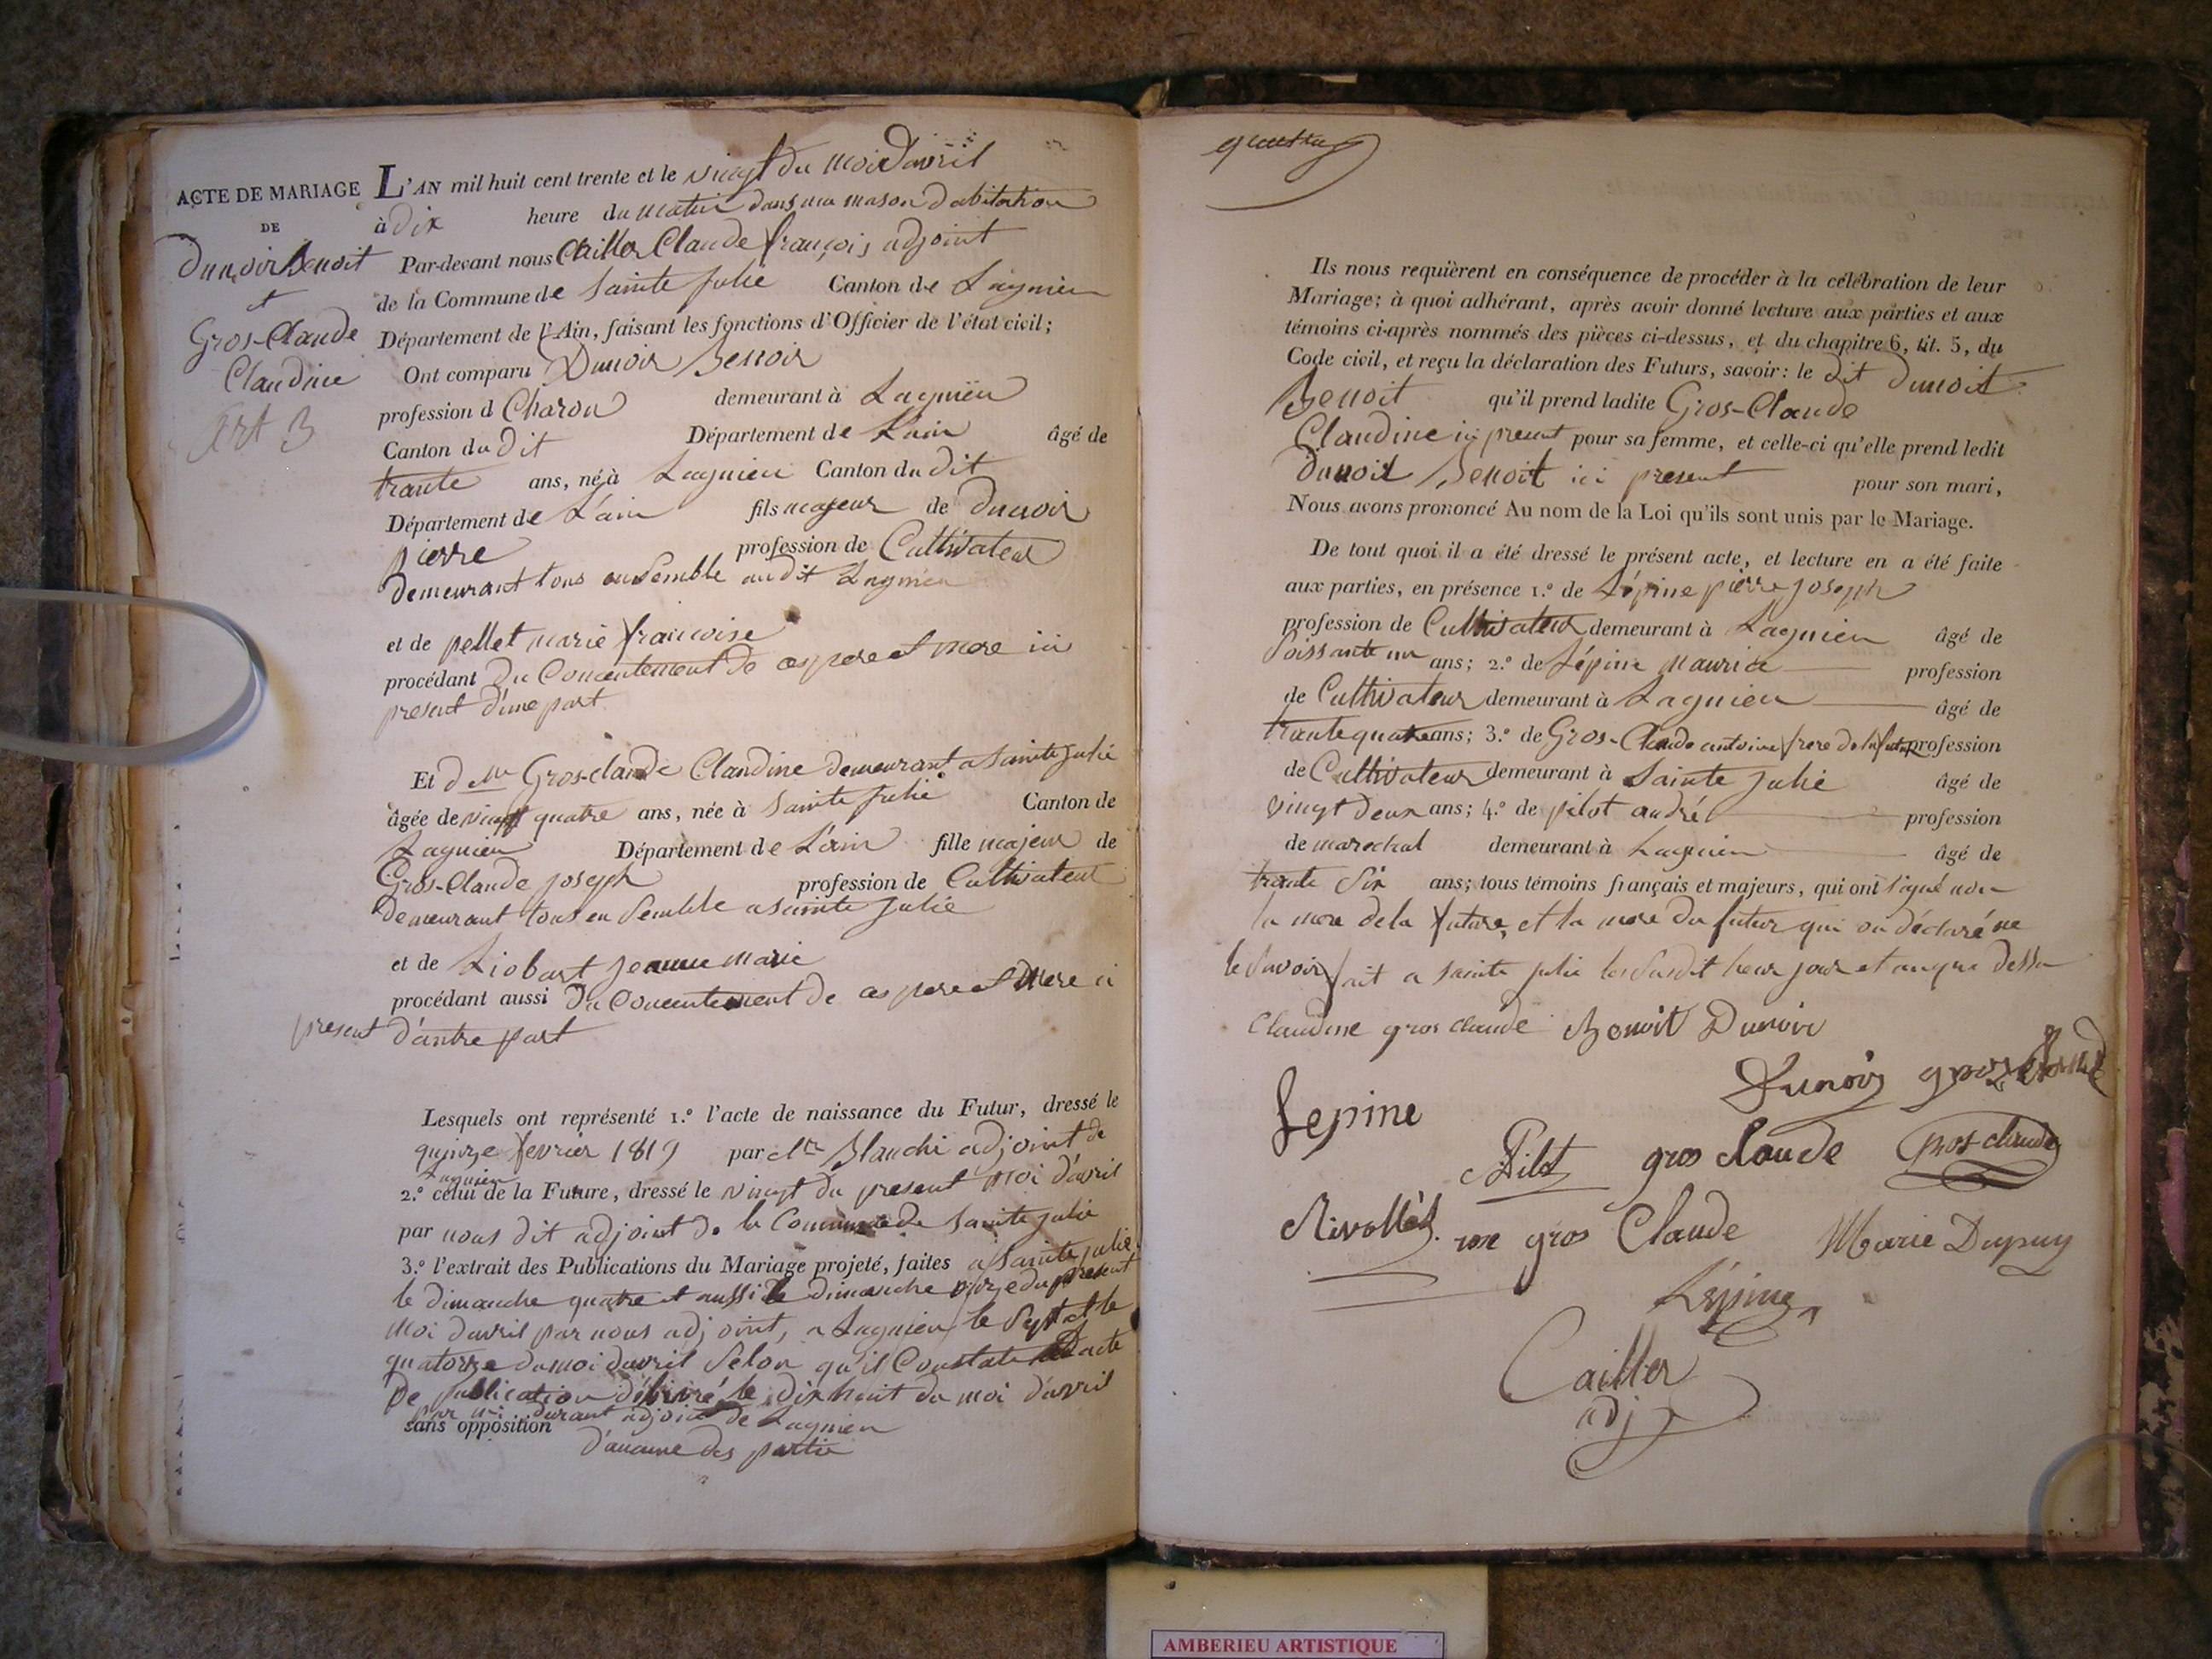 ACTE DE MARIAGE
DE
Dunoir Benoit
et
Gros-Claude
Claudine
Art 3
L'AN mil huit cent trente et le vingt du moi Davril
à dix heure du matin dans ma mason dabitation
Par-devant nous Cailler Claude françois adjoint
de la Commune de Sainte Julie Canton de Lagnieu
Département de l'Ain, faisant les fonctions d'Officier de l'état civil;
Ont comparu Dunoir Benoir
profession d Charon demeurant à Lagnieu
Canton du dit Département de L'ain âgé de
trante ans, né à Lagnieu Canton du dit
Département de L'ain fils majeur de dunoir
pierre profession de Cultivateur
demeurant tous ensemble audit Lagnieu
et de pellet marie francoise
procédant du Concentement de ces pere et mere ici
present d'une part
Et dlle Gros-claude Claudine demeurant a Sainte Julie
âgée de vingt quatre ans, née à Sainte Julie Canton de
Lagnieu Département de L'ain fille majeur de
Gros-Claude joseph profession de Cultivateur
demeurant tous en Semble a Sainte Julie
et de Liobart jeanne marie
procédant aussi du Concentement de ces pere et mere ci
present d'autre part
Lesquels ont représenté 1.º l'acte de naissance du Futur, dressé le
quinze fevrier 1819 par Mr Blanchi adjoint de
Lagnieu
2.º celui de la Future, dressé le vingt du present moi d'avril
par nous dit adjoint de la Commune de Sainte julie
3.º l'extrait des Publications du Mariage projeté, faites a Sainte julie
le dimanche quatre et aussi le dimanche onze du present
moi davril par nous adjoint, a Lagnieu le Sept et le
quatorze du moi davril Selon qu'il Constate acte
de publication délivré le dix huit du moi d'avril
par mr durant adjoint de Lagnieu
sans opposition
d'aucune des partie
Ils nous requièrent en conséquence de procéder à la célébration de leur
Mariage; à quoi adhérant, après avoir donné lecture aux parties et aux
témoins ci-après nommés des pièces ci-dessus, et du chapitre 6, tit. 5, du
Code civil, et reçu la déclaration des Futurs, savoir: le dit dunoit
Benoit qu'il prend ladite Gros-Claude
Claudine ici present pour sa femme, et celle-ci qu'elle prend ledit
dunoit Benoit ici present pour son mari,
Nous avons prononcé Au nom de la Loi qu'ils sont unis par le Mariage.
De tout quoi il a été dressé le présent acte, et lecture en a été faite
aux parties, en présence 1.º de Lépine pierre joseph
profession de Cultivateur demeurant à Lagnieu âgé de
Soissante un ans; 2.º de Lépine Maurice profession
de Cultivateur demeurant à Lagnieu âgé de
trante quatre ans; 3.º de Gros-Claude antoine frere de la future profession
de Cultivateur demeurant à Sainte Julie âgé de
vingt deux ans; 4.º de pilot andré profession
de marechal demeurant à Lagnieu âgé de
trante Six ans; tous témoins français et majeurs, qui ont signé non
la mere de la future, et la mere du futur qui on déclaré ne
le Savoir fait a Sainte julie les Susdit heur jour et an que dessu
Claudine gros claude Benoit Dunoir
Dunoir gros Claude
Lepine
Pilot gros claude Gros claude
Rivollet rose gros Claude Marie Dupuy
Lépine
Cailler
adj
AMBERIEU ARTISTIQUE